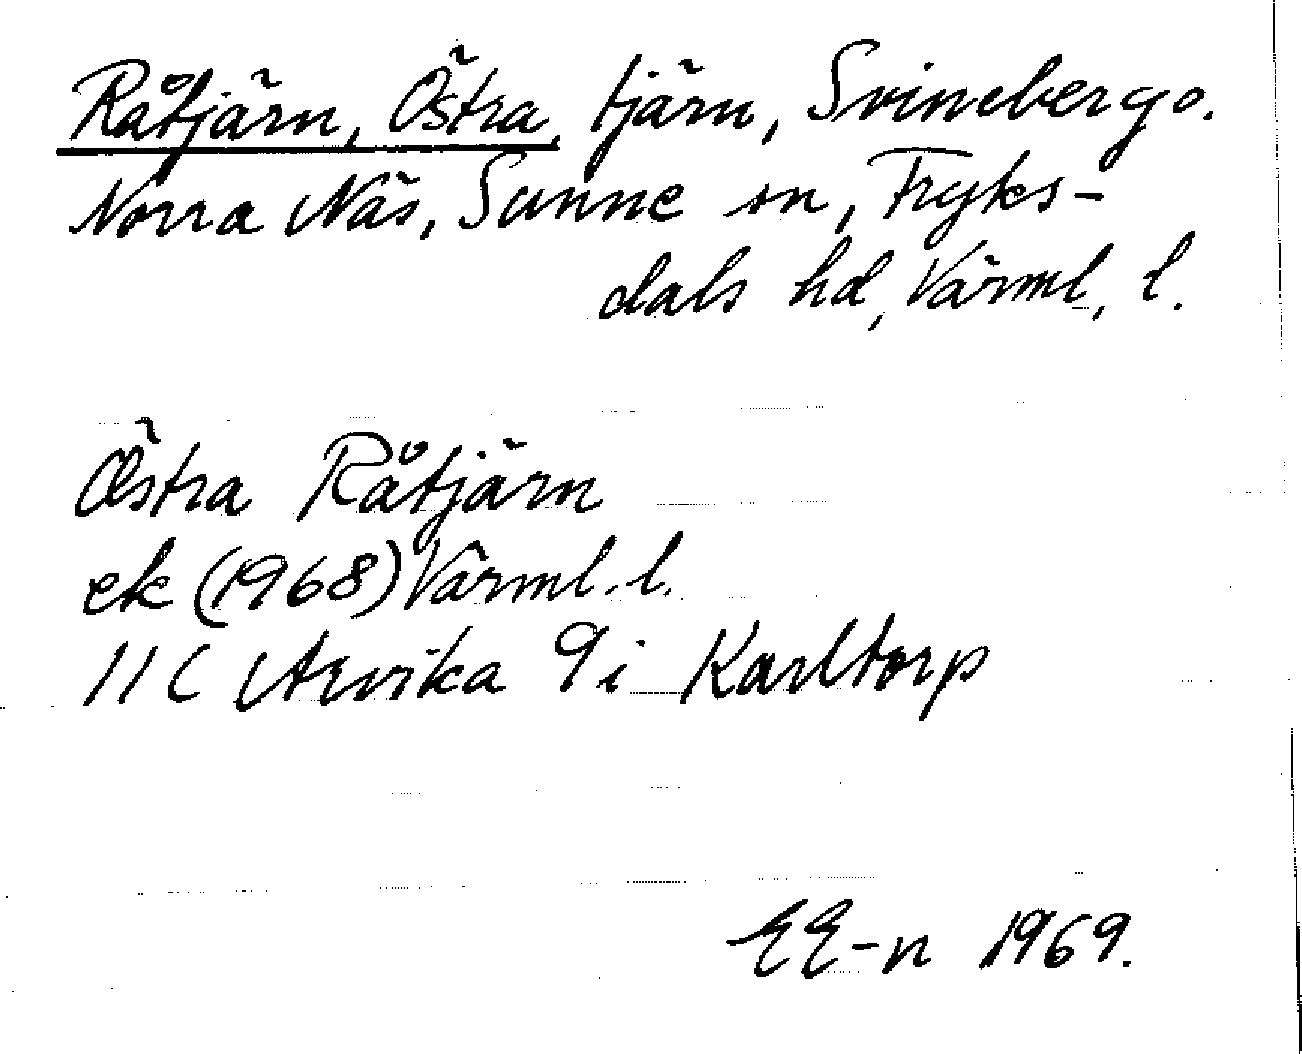 Råtjärn, Östra, tjärn, Svinebergo.
Norra Näs, Sunne sn, Fryks-
dals hd, Värml. l.
Östra Råtjärn
ek (1968) Värml. l.
11C Arvika 9i Karltorp
EE-n 1969.